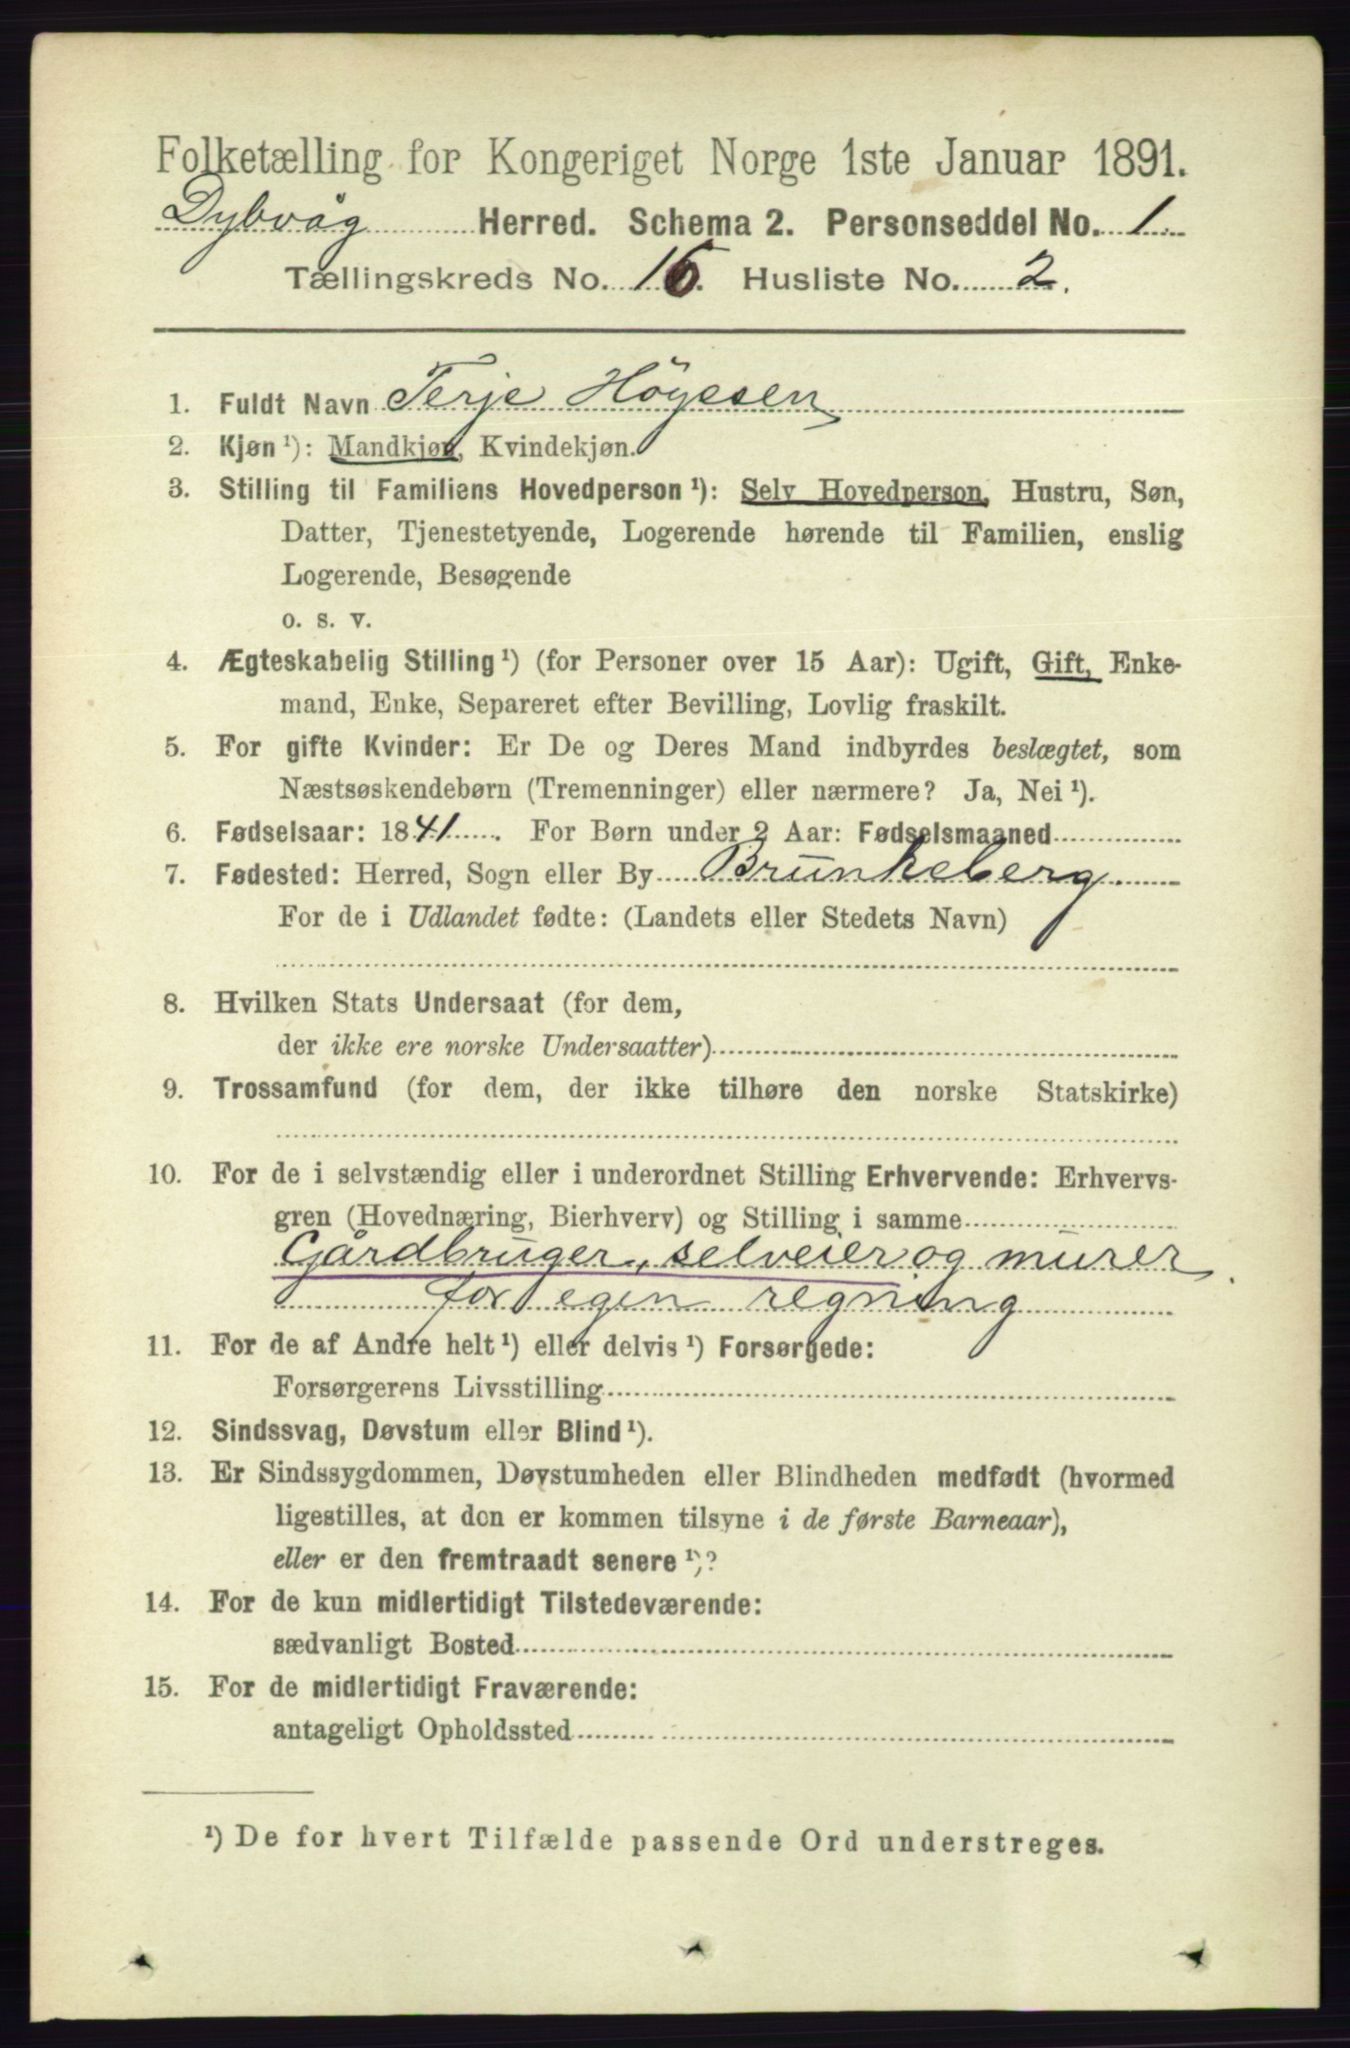 Folketælling for Kongeriget Norge 1ste Januar 1891.
Dybvåg Herred. Schema 2. Personseddel No. 1
Tællingskreds No. 16. Husliste No. 2.
1. Fuldt Navn Terje Höyesen
2. Kjøn ¹): Mandkjøn, Kvindekjøn.
3. Stilling til Familiens Hovedperson ¹): Selv Hovedperson, Hustru, Søn,
Datter, Tjenestetyende, Logerende hørende til Familien, enslig
Logerende, Besøgende
o. s. v.
4. Ægteskabelig Stilling ¹) (for Personer over 15 Aar): Ugift, Gift, Enke-
mand, Enke, Separeret efter Bevilling, Lovlig fraskilt.
5. For gifte Kvinder: Er De og Deres Mand indbyrdes beslægtet, som
Næstsøskendebørn (Tremenninger) eller nærmere? Ja, Nei ¹).
6. Fødselsaar: 1841. For Børn under 2 Aar: Fødselsmaaned
7. Fødested: Herred, Sogn eller By Brunkeberg
For de i Udlandet fødte: (Landets eller Stedets Navn)
8. Hvilken Stats Undersaat (for dem,
der ikke ere norske Undersaatter)
9. Trossamfund (for dem, der ikke tilhøre den norske Statskirke)
10. For de i selvstændig eller i underordnet Stilling Erhvervende: Erhvervs-
gren (Hovednæring, Bierhverv) og Stilling i samme
Gårdbruger, selveier og murer
for egen regning
11. For de af Andre helt ¹) eller delvis ¹) Forsørgede:
Forsørgerens Livsstilling
12. Sindssvag, Døvstum eller Blind ¹).
13. Er Sindssygdommen, Døvstumheden eller Blindheden medfødt (hvormed
ligestilles, at den er kommen tilsyne i de første Barneaar),
eller er den fremtraadt senere ¹)?
14. For de kun midlertidigt Tilstedeværende:
sædvanligt Bosted
15. For de midlertidigt Fraværende:
antageligt Opholdssted
¹) De for hvert Tilfælde passende Ord understreges.